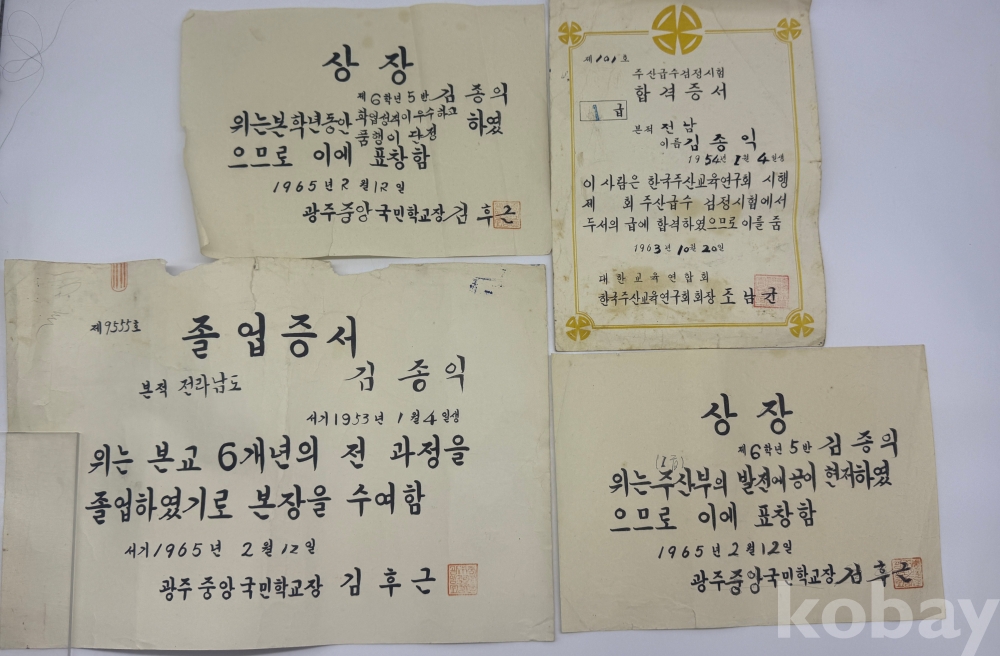 상장
제6학년5반 김종의
위는본학년동안 학업성적이우수하고 품행이 단정 하였
으므로 이에 표창함
1965년 2월 12일
광주중앙국민학교장 김후근
제101호
주산급수검정시험
합격증서
급
본적 전남
이름 김종익
1954년 1월 4일생
이 사람은 한국주산교육연구회 시행
제 회 주산급수 검정시험에서
두서의 급에 합격하였으므로 이를 줌
1963년 10월 20일
대한교육연합회
한국주산교육연구회회장 조남균
제9555호
졸업증서
본적 전라남도 김종익
서기1953년 1월 4일생
위는 본교 6개년의 전 과정을
졸업하였기로 본장을 수여함
서기1965년 2월 12일
광주중앙국민학교장 김후근
상장
제6학년5반 김종의
위는주산부의 발전에 공이 현저하였
으므로 이에 표창함
1965년 2월 12일
광주중앙국민학교장 김후근
kobay